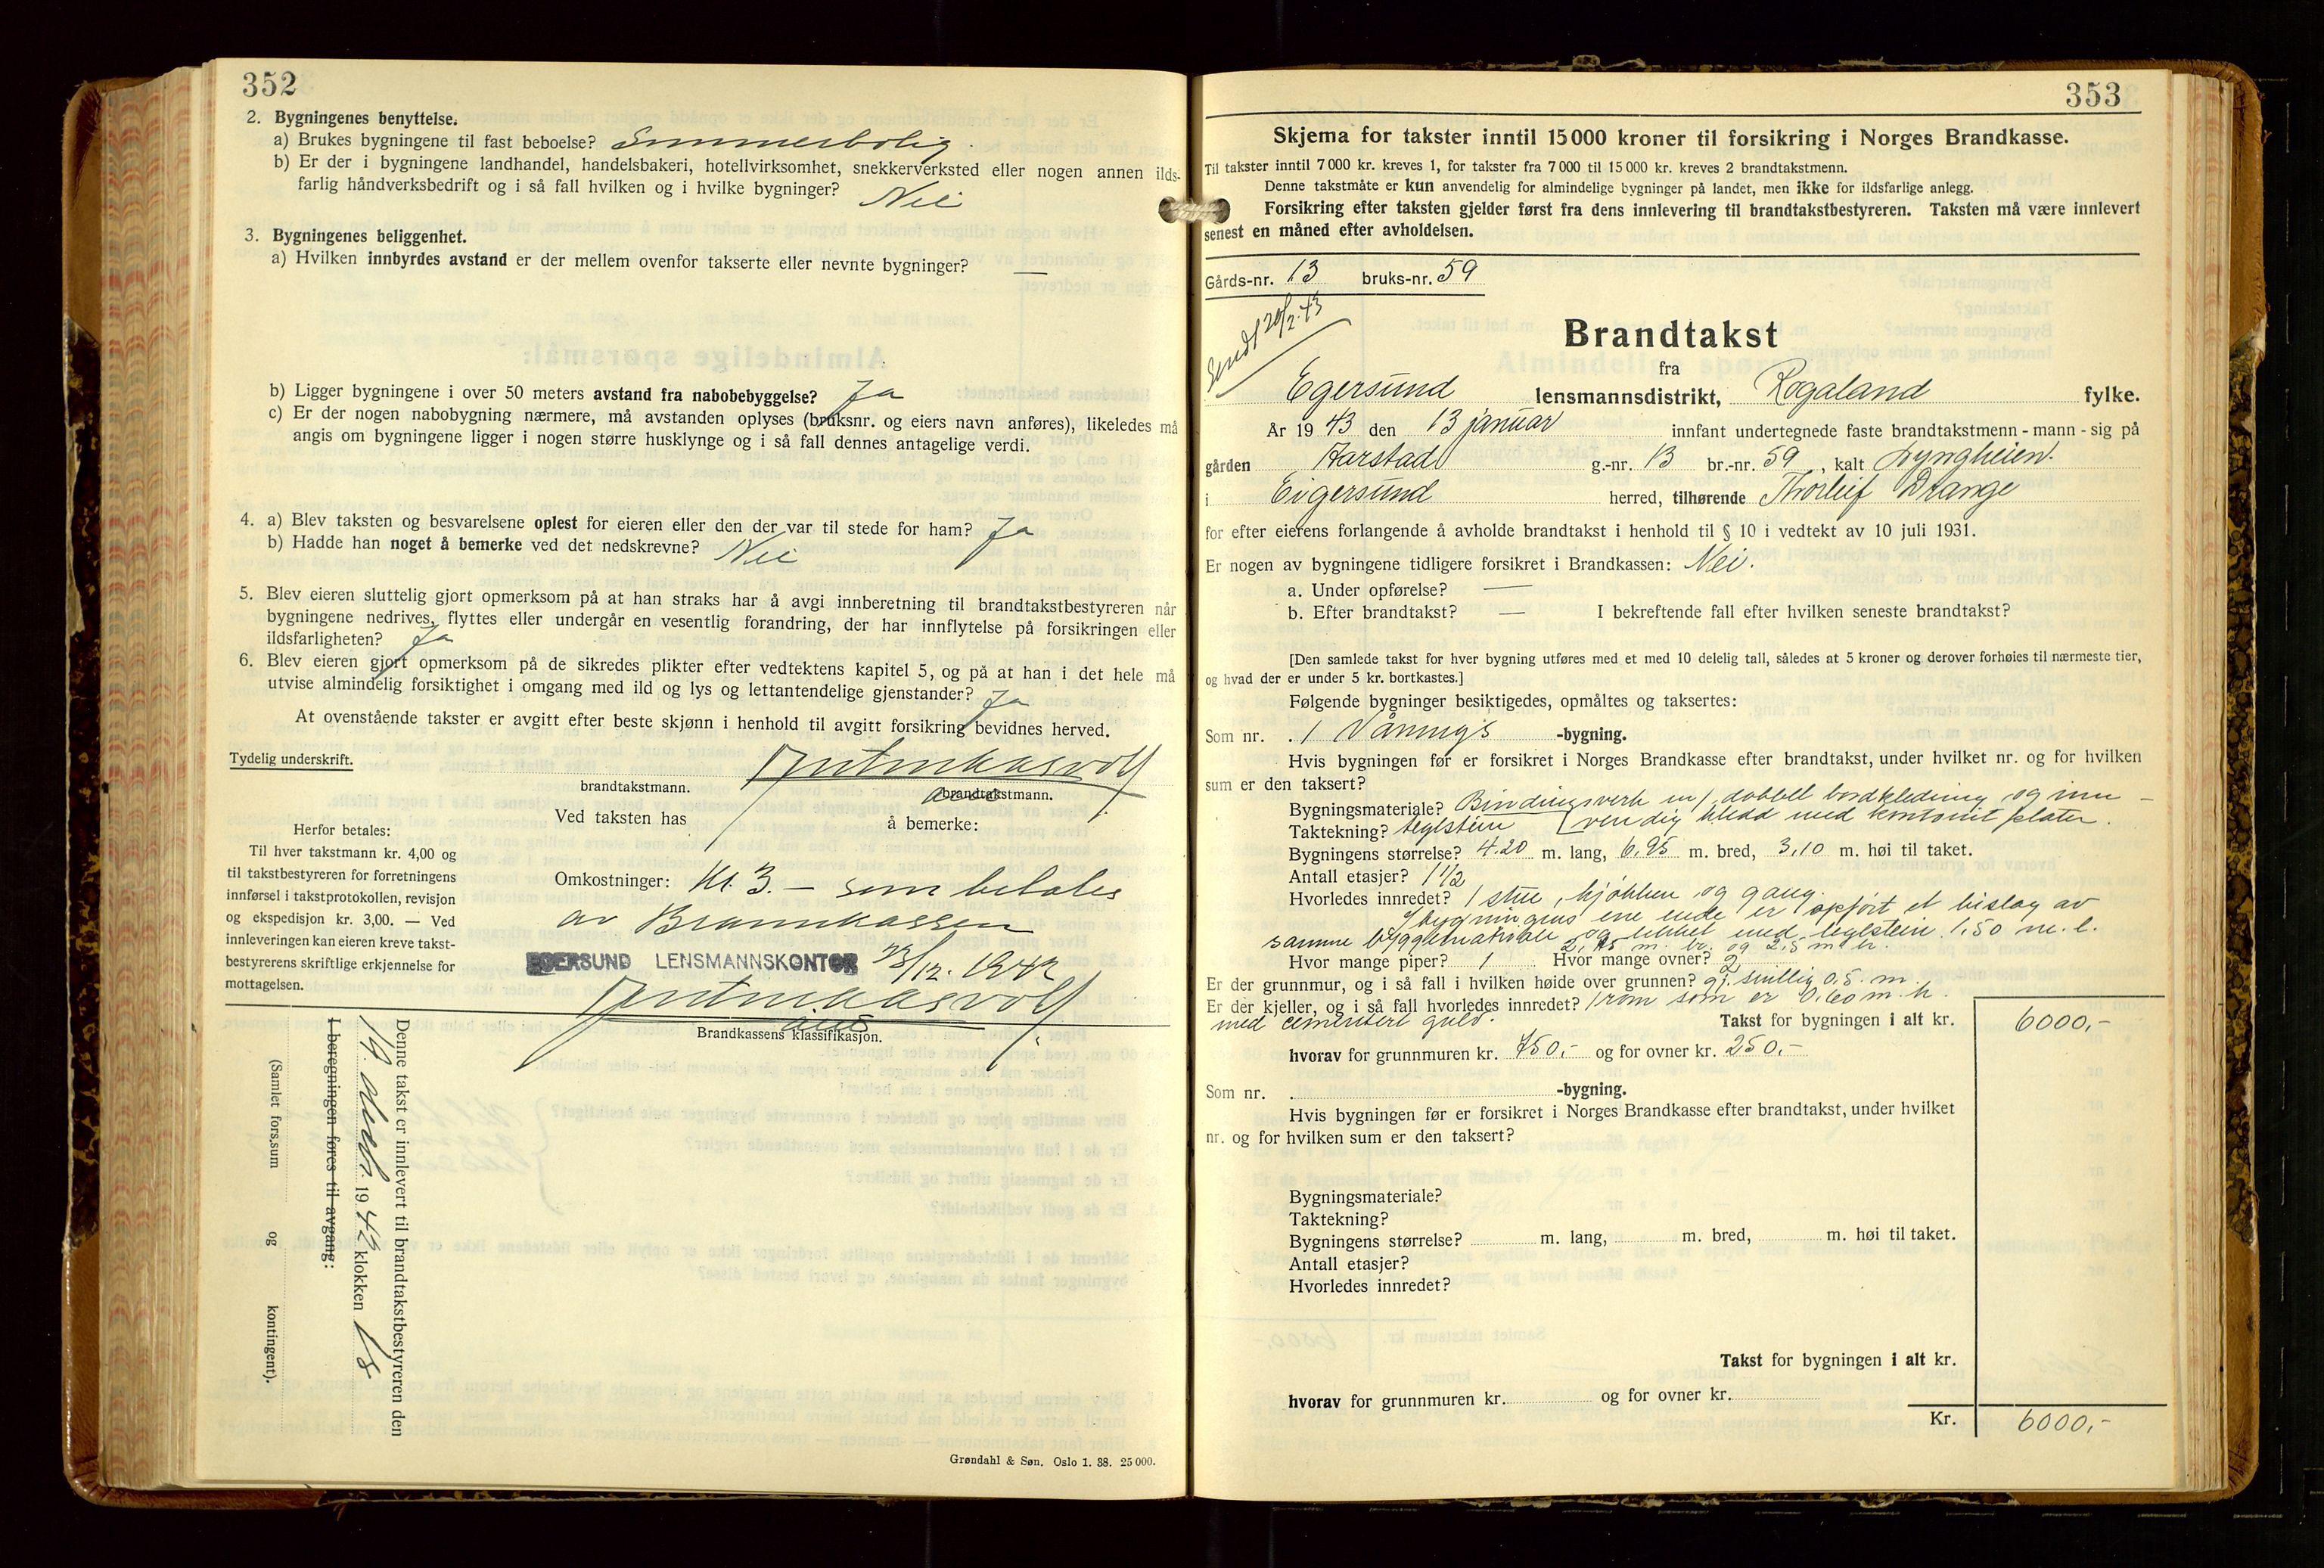 352
2. Bygningenes benyttelse.
a) Brukes bygningene til fast beboelse? Sommerbolig.
b) Er der i bygningene landhandel, handelsbakeri, hotellvirksomhet, snekkerverksted eller nogen annen ilds-
farlig håndverksbedrift og i så fall hvilken og i hvilke bygninger? Nei
3. Bygningenes beliggenhet.
a) Hvilken innbyrdes avstand er der mellem ovenfor takserte eller nevnte bygninger? —
b) Ligger bygningene i over 50 meters avstand fra nabobebyggelse? Ja
c) Er der nogen nabobygning nærmere, må avstanden oplyses (bruksnr. og eiers navn anføres), likeledes må
angis om bygningene ligger i nogen større husklynge og i så fall dennes antagelige verdi.
4. a) Blev taksten og besvarelsene oplest for eieren eller den der var til stede for ham? Ja
b) Hadde han noget å bemerke ved det nedskrevne? Nei
5. Blev eieren sluttelig gjort opmerksom på at han straks har å avgi innberetning til brandtakstbestyreren når
bygningene nedrives, flyttes eller undergår en vesentlig forandring, der har innflytelse på forsikringen eller
ildsfarligheten? Ja
6. Blev eieren gjort opmerksom på de sikredes plikter efter vedtektens kapitel 5, og på at han i det hele må
utvise almindelig forsiktighet i omgang med ild og lys og lettantendelige gjenstander? Ja
At ovenstående takster er avgitt efter beste skjønn i henhold til avgitt forsikring bevidnes herved.
Tydelig underskrift.
brandtakstmann. brandtakstmann.
Ved taksten has å bemerke:
Herfor betales:
Til hver takstmann kr. 4,00 og
til takstbestyreren for forretningens
innførsel i takstprotokollen, revisjon
og ekspedisjon kr. 3,00. — Ved
innleveringen kan eieren kreve takst-
bestyrerens skriftlige erkjennelse for
mottagelsen.
Omkostninger: Kr. 3.— som betales
av Brannkassen
EGERSUND LENSMANNSKONTOR 23/12. 1942
Brandkassens klassifikasjon.
Denne takst er innlevert til brandtakstbestyreren den
19 desbr. 1942 klokken 18
I beregningen føres til avgang:
(Samlet fors.sum og kontingent).
Grøndahl & Søn. Oslo 1. 38. 25 000.
353
Skjema for takster inntil 15 000 kroner til forsikring i Norges Brandkasse.
Til takster inntil 7 000 kr. kreves 1, for takster fra 7 000 til 15 000 kr. kreves 2 brandtakstmenn.
Denne takstmåte er kun anvendelig for almindelige bygninger på landet, men ikke for ildsfarlige anlegg.
Forsikring efter taksten gjelder først fra dens innlevering til brandtakstbestyreren. Taksten må være innlevert
senest en måned efter avholdelsen.
Gårds-nr. 13 bruks-nr. 59
Sendt 20/2-43
Brandtakst
fra
Egersund lensmannsdistrikt, Rogaland fylke.
År 1943 den 13 januar innfant undertegnede faste brandtakstmenn - mann - sig på
gården Aarstad g.-nr. 13 br.-nr. 59, kalt Lyngheien.
i Eigersund herred, tilhørende Thorleif Drange
for efter eierens forlangende å avholde brandtakst i henhold til § 10 i vedtekt av 10 juli 1931.
Er nogen av bygningene tidligere forsikret i Brandkassen: Nei.
a. Under opførelse? —
b. Efter brandtakst? — I bekreftende fall efter hvilken seneste brandtakst?
[Den samlede takst for hver bygning utføres med et med 10 delelig tall, således at 5 kroner og derover forhøies til nærmeste tier,
og hvad der er under 5 kr. bortkastes.]
Følgende bygninger besiktigedes, opmåltes og taksertes:
Som nr. 1 Vånings -bygning.
Hvis bygningen før er forsikret i Norges Brandkasse efter brandtakst, under hvilket nr. og for hvilken
sum er den taksert?
Bygningsmateriale? Bindingsverk m/ dobbel bordkledning og inn-
Taktekning? teglstein [vendig kledd med kontonit plater.
Bygningens størrelse? 4.20 m. lang, 6,95 m. bred, 3,10 m. høi til taket.
Antall etasjer? 1 1/2
Hvorledes innredet? 1 stue, kjøkken og gang.
I bygningens ene ende er opført et bislag av
samme byggemateriale og tekket med teglstein. 1,50 m. l.
m. br. og 2,5 m h.
Hvor mange piper? 1 Hvor mange ovner? 2
Er der grunnmur, og i så fall i hvilken høide over grunnen? gj.snittlig 0,5 m
Er der kjeller, og i så fall hvorledes innredet? 1 rom som er 0,60 m. h.
med cementert gulv. Takst for bygningen i alt kr. 6000,-
hvorav for grunnmuren kr. 750,- og for ovner kr. 250,-
Som nr. -bygning.
Hvis bygningen før er forsikret i Norges Brandkasse efter brandtakst, under hvilket
nr. og for hvilken sum er den taksert?
Bygningsmateriale?
Taktekning?
Bygningens størrelse? m. lang, m. bred, m. høi til taket.
Antall etasjer?
Hvorledes innredet?
Takst for bygningen i alt kr.
hvorav for grunnmuren kr. og for ovner kr.
Kr. 6000,-